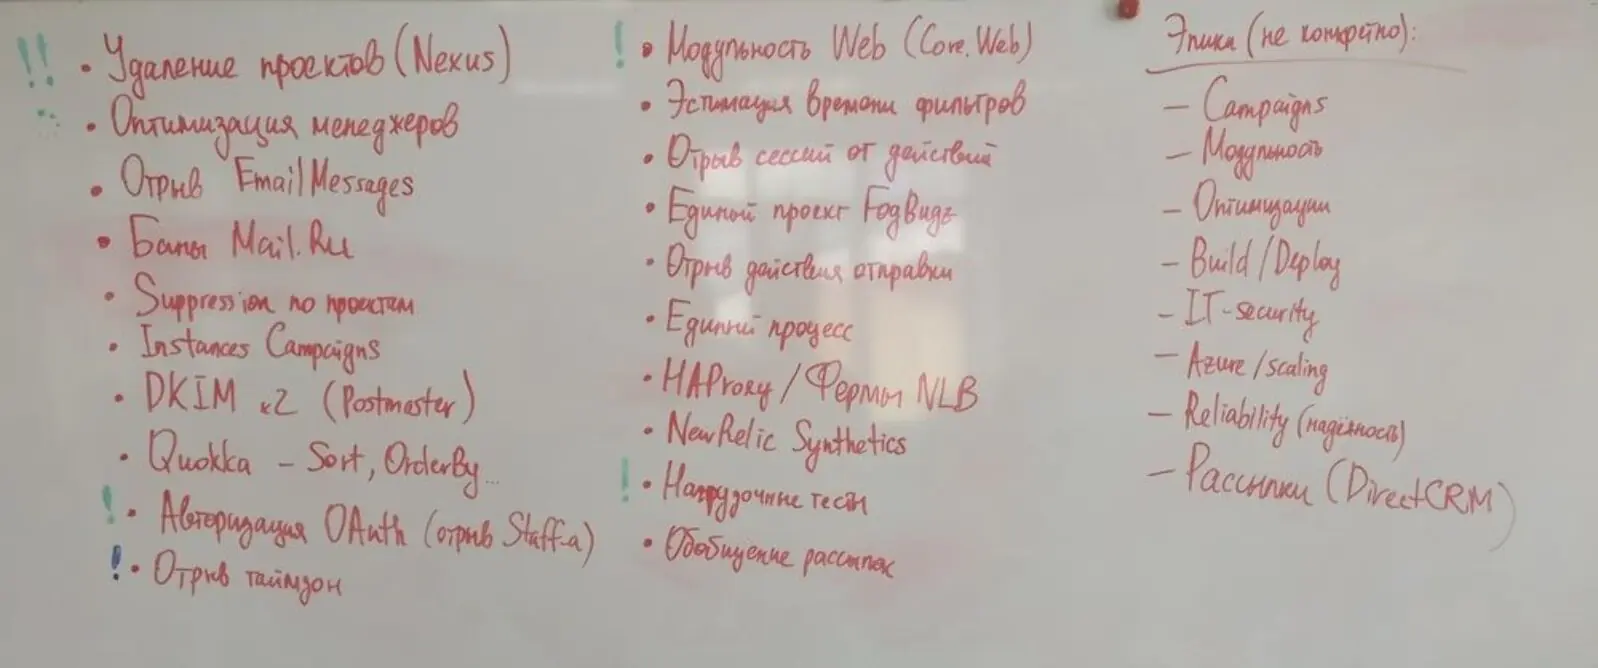 !! • Удаление проектов (Nexus)
• Оптимизация менеджеров
• Отрыв EmailMessages
• Баны Mail.Ru
• Suppression по проектам
• Instances Campaigns
• DKIM x2 (Postmaster)
• Quokka – Sort, OrderBy...
! • Авторизация OAuth (отрыв Staff-а)
! • Отрыв таймзон
! • Модульность Web (Core.Web)
• Эстимация времени фильтров
• Отрыв сессий от действий
• Единый проект FogBugz
• Отрыв действия отправки
• Единый процесс
• HAProxy / Фермы NLB
• NewRelic Synthetics
! • Нагрузочные тесты
• Обобщение рассылок
Эпики (не конкретно):
– Campaigns
– Модульность
– Оптимизации
– Build / Deploy
– IT-security
– Azure / scaling
– Reliability (надёжность)
– Рассылки (DirectCRM)